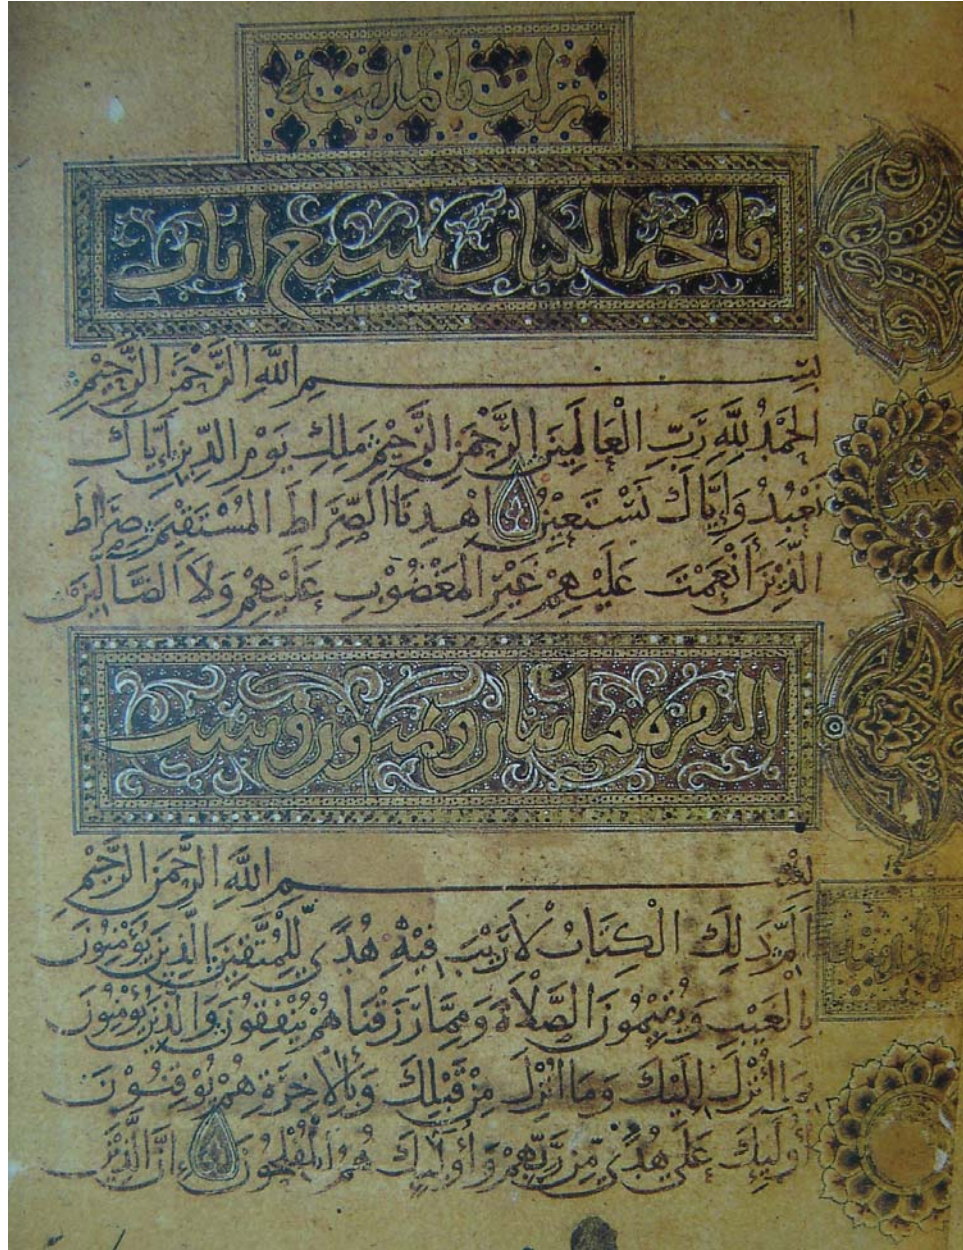 نزلت بالمدينة
فاتحة الكتاب سبع ايات
بِسْمِ اللَّهِ الرَّحْمَنِ الرَّحِيمِ
الْحَمْدُ لِلَّهِ رَبِّ الْعَالَمِينَ الرَّحْمَنِ الرَّحِيمِ مَلِكِ يَوْمِ الدِّينِ إِيَّاكَ
نَعْبُدُ وَإِيَّاكَ نَسْتَعِينُ اهْدِنَا الصِّرَاطَ الْمُسْتَقِيمَ صِرَاطَ
الَّذِينَ أَنْعَمْتَ عَلَيْهِمْ غَيْرِ الْمَغْضُوبِ عَلَيْهِمْ وَلَا الضَّالِّينَ
البقرة مايتان وثمنون وست
بِسْمِ اللَّهِ الرَّحْمَنِ الرَّحِيمِ
الَمِّ ذَلِكَ الْكِتَابُ لَا رَيْبَ فِيهِ هُدًى لِّلْمُتَّقِينَ الَّذِينَ يُؤْمِنُونَ
بِالْغَيْبِ وَيُقِيمُونَ الصَّلَاةَ وَمِمَّا رَزَقْنَاهُمْ يُنْفِقُونَ وَالَّذِينَ يُؤْمِنُونَ
بِمَا أُنْزِلَ إِلَيْكَ وَمَا أُنْزِلَ مِنْ قَبْلِكَ وَبِالْآخِرَةِ هُمْ يُوقِنُونَ
أُولَئِكَ عَلَى هُدًى مِّن رَّبِّهِمْ وَأُولَئِكَ هُمُ الْمُفْلِحُونَ إِنَّ الَّذِينَ